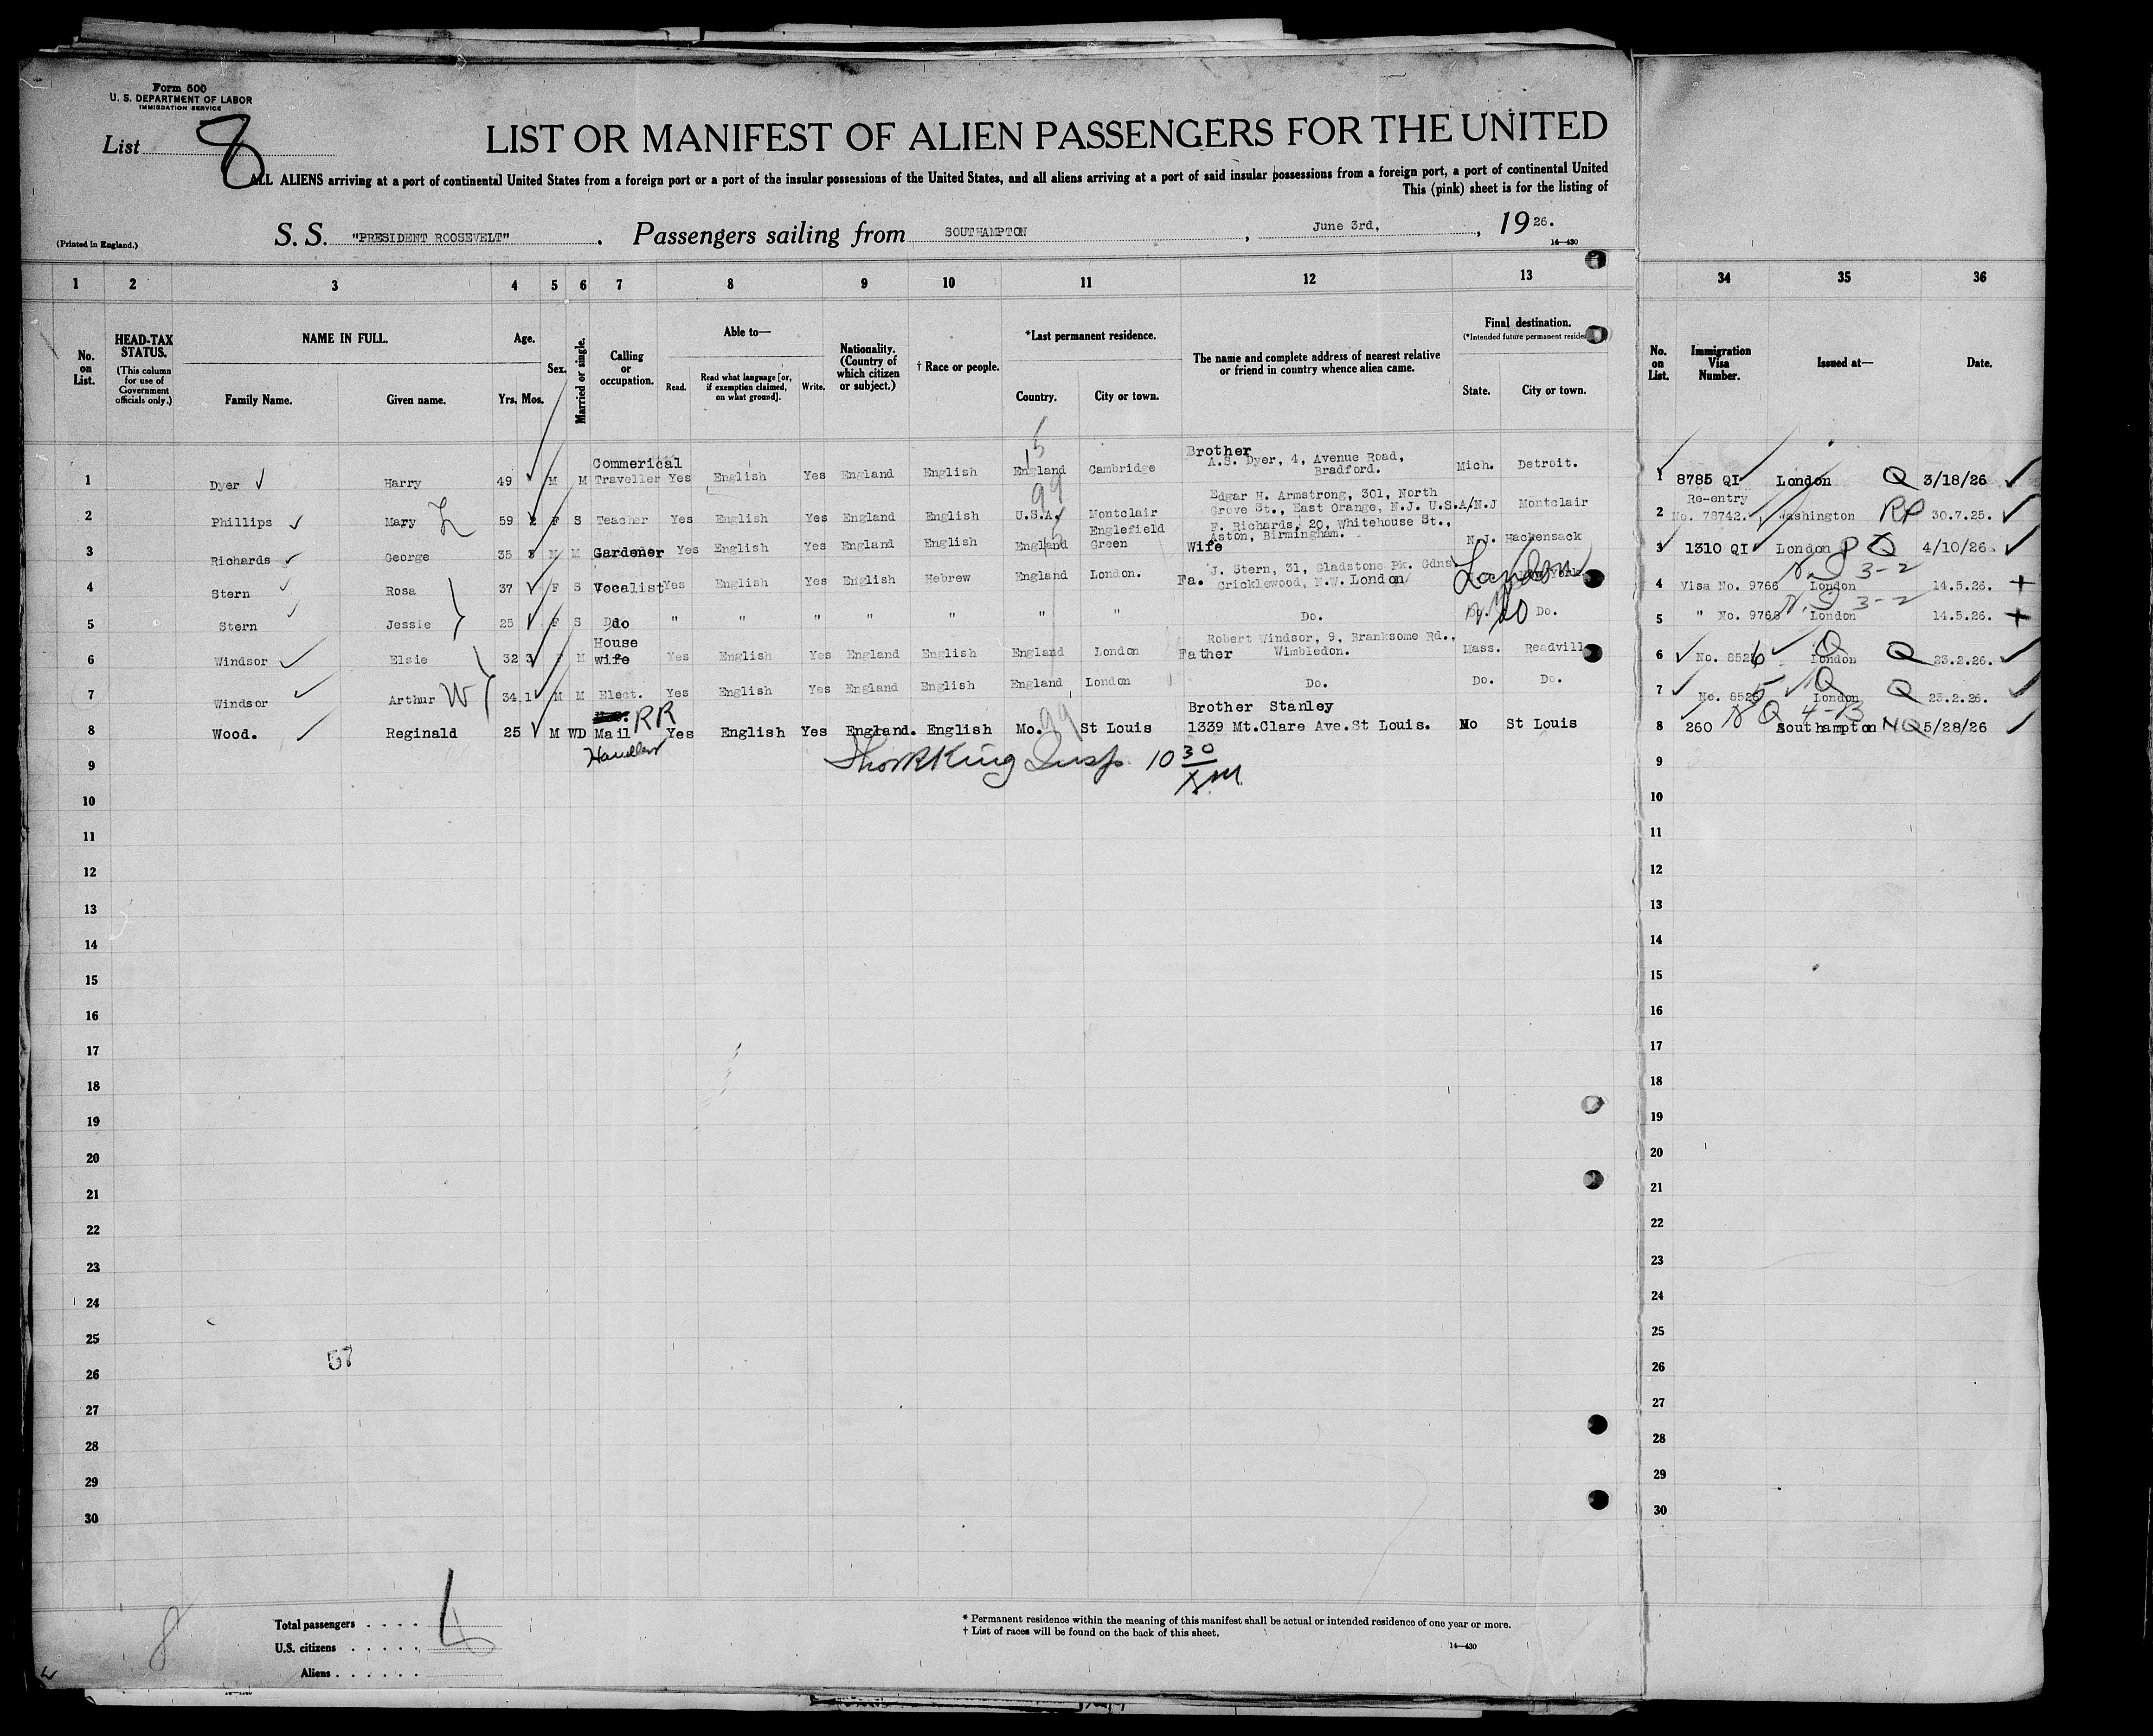 Form 500
U. S. DEPARTMENT OF LABOR
IMMIGRATION SERVICE
List 8
LIST OR MANIFEST OF ALIEN PASSENGERS FOR THE UNITED
ALL ALIENS arriving at a port of continental United States from a foreign port or a port of the insular possessions of the United States, and all aliens arriving at a port of said insular possessions from a foreign port, a port of continental United
This (pink) sheet is for the listing of
(Printed in England.)
S. S. "PRESIDENT ROOSEVELT" . Passengers sailing from SOUTHAMPTON , June 3rd, , 19 26.
14—430
1 2 3 4 5 6 7 8 9 10 11 12 13 34 35 36
No. on List.
HEAD-TAX STATUS.
(This column for use of Government officials only.)
NAME IN FULL.
Family Name. Given name.
Age.
Yrs. Mos.
Sex.
Married or single.
Calling or occupation.
Able to—
Read. Read what language [or, if exemption claimed, on what ground]. Write.
Nationality. (Country of which citizen or subject.)
† Race or people.
*Last permanent residence.
Country. City or town.
The name and complete address of nearest relative or friend in country whence alien came.
Final destination.
(*Intended future permanent residen
State. City or town.
No. on List.
Immigration Visa Number.
Issued at—
Date.
1 Dyer Harry 49 M M Commerical Traveller Yes English Yes England English England Cambridge Brother A.S. Dyer, 4, Avenue Road, Bradford. Mich. Detroit. 1 8785 QI London Q 3/18/26
2 Phillips Mary 59 2 F S Teacher Yes English Yes England English U.S.A. Montclair Edgar H. Armstrong, 301, North Grove St., East Orange, N.J. U.S.A. N.J Montclair 2 Re-entry No. 78742. Washington RP 30.7.25.
3 Richards George 35 3 M M Gardener Yes English Yes England English England Englefield Green Wife F. Richards, 20, Whitehouse St., Aston, Birmingham. N.J. Hackensack 3 1310 QI London Q 4/10/26
4 Stern Rosa 37 F S Vocalist Yes English Yes English Hebrew England London. Fa. J. Stern, 31, Gladstone Pk. Gdns Cricklewood, N.W. London London 4 Visa No. 9766 London 3-2 14.5.26.
5 Stern Jessie 25 F S Ddo " " " " " " " Do. Do. Do. 5 " No. 9768 London 3-2 14.5.26.
6 Windsor Elsie 32 3 F M House wife Yes English Yes England English England London Father Robert Windsor, 9, Branksome Rd., Wimbledon. Mass. Readvill 6 No. 8526 London Q 23.2.26.
7 Windsor Arthur W 34.1 M M Elect. Yes English Yes England English England London Do. Do. Do. 7 No. 8525 London Q 23.2.26.
8 Wood. Reginald 25 M WD RR Mail Handler Yes English Yes England. English Mo. 99 St Louis Brother Stanley 1339 Mt.Clare Ave.St Louis. Mo St Louis 8 260 Southampton NQ 5/28/26
9 10 30 9
10 10
11 11
12 12
13 13
14 14
15 15
16 16
17 17
18 18
19 19
20 20
21 21
22 22
23 23
24 24
25 25
57
26 26
27 27
28 28
29 29
30 30
8
Total passengers . . . .
U.S. citizens . . . . .
Aliens . . . . . .
* Permanent residence within the meaning of this manifest shall be actual or intended residence of one year or more.
† List of races will be found on the back of this sheet.
14—430